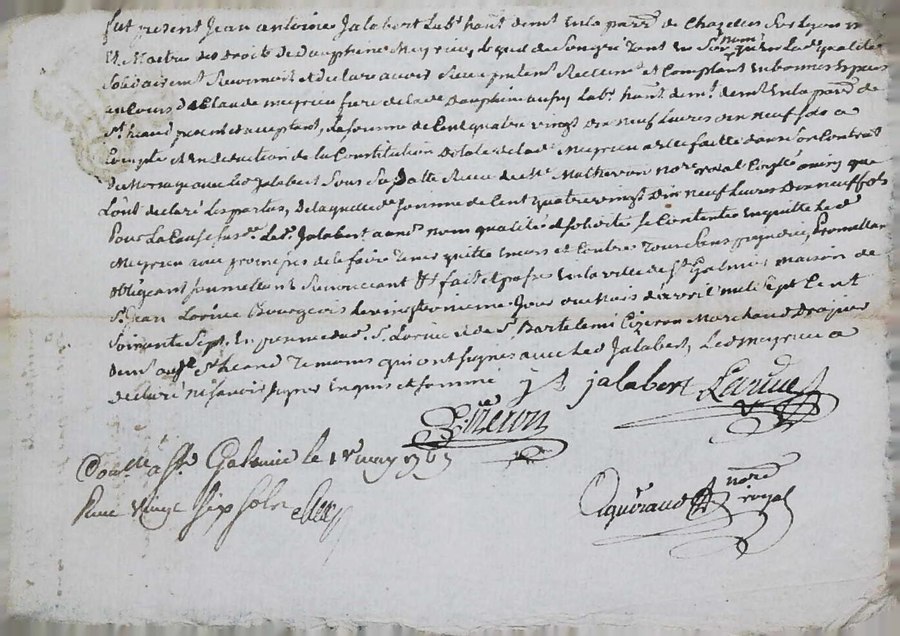 fut present Jean antoine Jalabert Labr habt demt en la parre de Chazelles Sur Lyon
Et Maitre des droits de dauphine Meyrieu, lequel de Son gré tant en Son nom qu'en la de qualité
Solidairemt Reconnoit et declare avoir Recu presentt Reellemt et Comptant en bonnes Especes
au Cours de Claude meyrieu frere de lade Dauphine aussy Labr habt demt en la parre de
st heand present et acceptant, la Somme de Cent quatre vingt Dix neuf Livres dix neuf sols a
Compte et en deduction de la Constitution dotale de lade Meyrieu a elle faitte dans Son Contrat
de Mariage avec led Jalabert Sous Sa Datte Recu de Me Malhevron nore royal ainsy que
L'ont declaré Les parties, de laquelle de Somme de Cent quatre vingt Dix neuf Livres Dix neuf sols
Pour La Cause susde Led. Jalabert aux nom qualité et solidité se Contente en quitte led
Meyrieu avec promesse de le faire tenir quitte envers et Contre tous Sans prejudice, Promettant
obligeant soumettant Renonciant &c fait et passé en la ville de St Galmier maison de
Sr Jean Bourgeois le vingt neuvieme Jour du Mois d'avril mil Sept Cent
Soixante Sept En presence dud Sr et de Sr Bartelemi Cizeron Marchand
demt aud st heand Temoins qui ont Signes avec led Jalabert, Led meyrieu a
declaré ne Savoir Signer Enquis et sommé
j A jalabert
Cizeron
Controllé a St Galmier le 1er may 1767
Reçu Vingt Six Sols
nore
royal